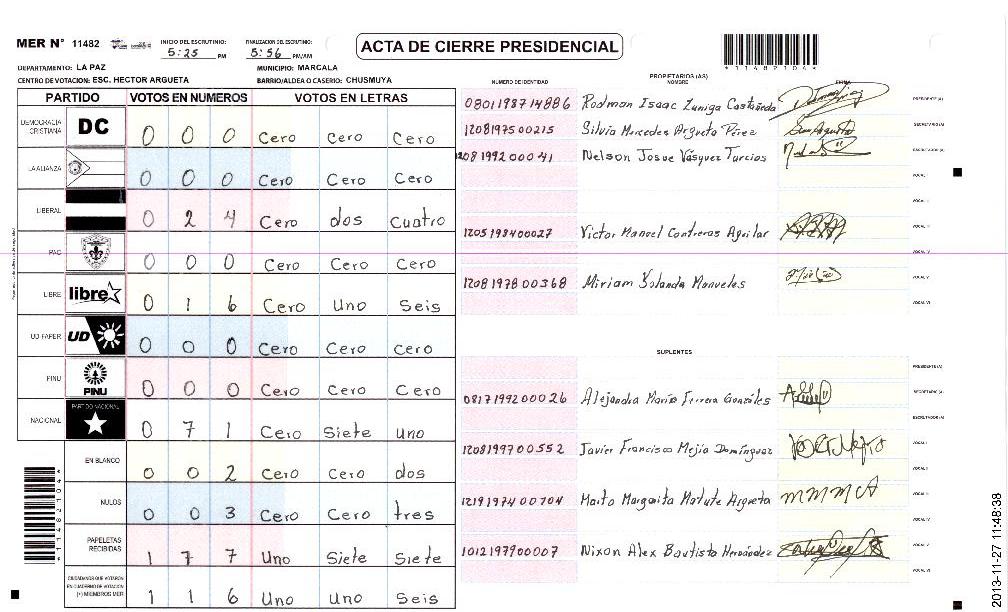 MER N° 11482
INICIO DEL ESCRUTINIO: 5:25 PM
FINALIZACION DEL ESCRUTINIO: 5:56 PM/AM
ACTA DE CIERRE PRESIDENCIAL
*11482104*
DEPARTAMENTO: LA PAZ MUNICIPIO: MARCALA
CENTRO DE VOTACION: ESC. HECTOR ARGUETA BARRIO/ALDEA O CASERIO: CHUSMUYA
PARTIDO VOTOS EN NUMEROS VOTOS EN LETRAS
DEMOCRACIA CRISTIANA DC 0 0 0 Cero Cero Cero
LA ALIANZA 0 0 0 Cero Cero Cero
LIBERAL 0 2 4 Cero dos cuatro
PAC 0 0 0 Cero Cero Cero
LIBRE libre 0 1 6 Cero Uno Seis
UD FAPER UD 0 0 0 Cero Cero Cero
PINU PINU 0 0 0 Cero Cero Cero
NACIONAL PARTIDO NACIONAL 0 7 1 Cero Siete uno
EN BLANCO 0 0 2 Cero Cero dos
NULOS 0 0 3 Cero Cero tres
PAPELETAS RECIBIDAS 1 7 7 Uno Siete Siete
CIUDADANOS QUE VOTARON EN CUADERNO DE VOTACION (+) MIEMBROS MER 1 1 6 Uno Uno Seis
PROPIETARIOS (AS)
NUMERO DE IDENTIDAD NOMBRE FIRMA
0801198714886 Rodman Isaac Zuniga Castañeda PRESIDENTE (A)
1208197500215 Silvia Mercedes Argueta Pérez SECRETARIO (A)
1208199200041 Nelson Josue Vásquez Turcios ESCRUTADOR (A)
VOCAL I
VOCAL II
1205198400027 Victor Manuel Contreras Aguilar VOCAL III
VOCAL IV
1208197800368 Miriam Yolanda Manueles VOCAL V
VOCAL VI
SUPLENTES
PRESIDENTE (A)
0817199200026 Alejandra María Ferrera Gonzáles SECRETARIO (A)
ESCRUTADOR (A)
1208199700552 Javier Francisco Mejía Domínguez VOCAL I
VOCAL II
1219197400704 Marta Margarita Matute Argueta VOCAL III
VOCAL IV
1012197900007 Nixon Alex Bautista Hernández VOCAL V
VOCAL VI
2013-11-27 11:48:38